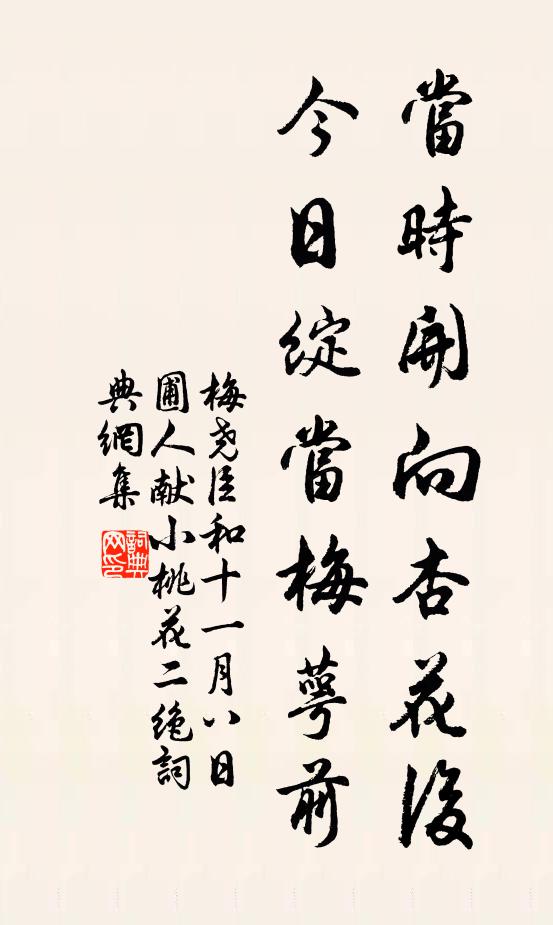 當時開向杏花後
今日綻當梅萼前
梅尧臣和十一月八日
圃人献小桃花二绝詞
典網集
詞典
网印